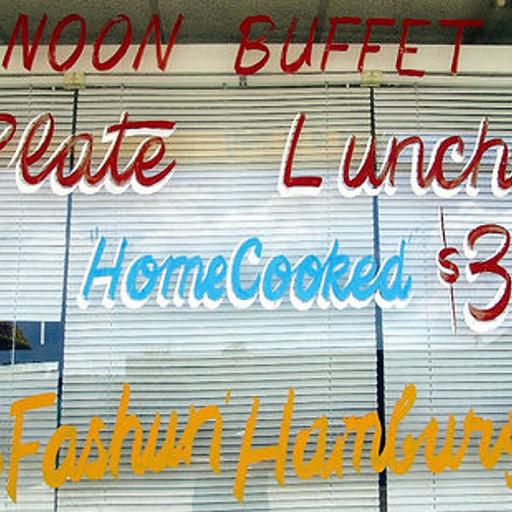 NOON BUFFET
Plate Lunch
"HomeCooked" $3
Fashun' Hamburg